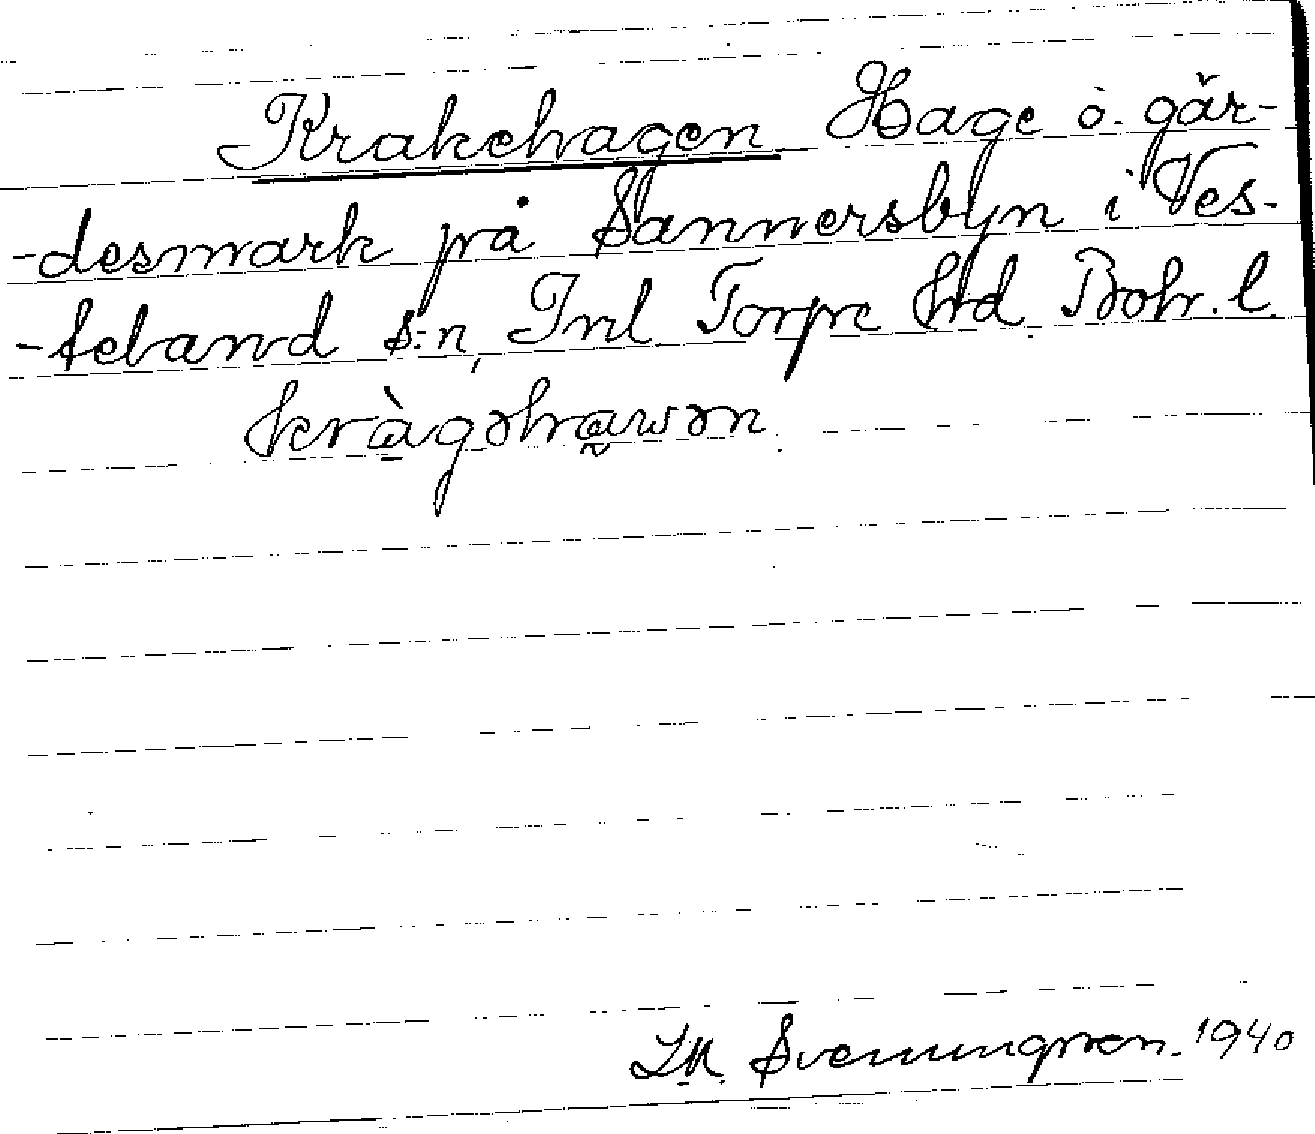 Krakehagen Hage o. gär-
-desmark på Sannersbyn i Ves-
-teland s:n, Inl Torpe hrd. Boh. l.
kràgəhawən.
J.M. Svenungsson. 1940